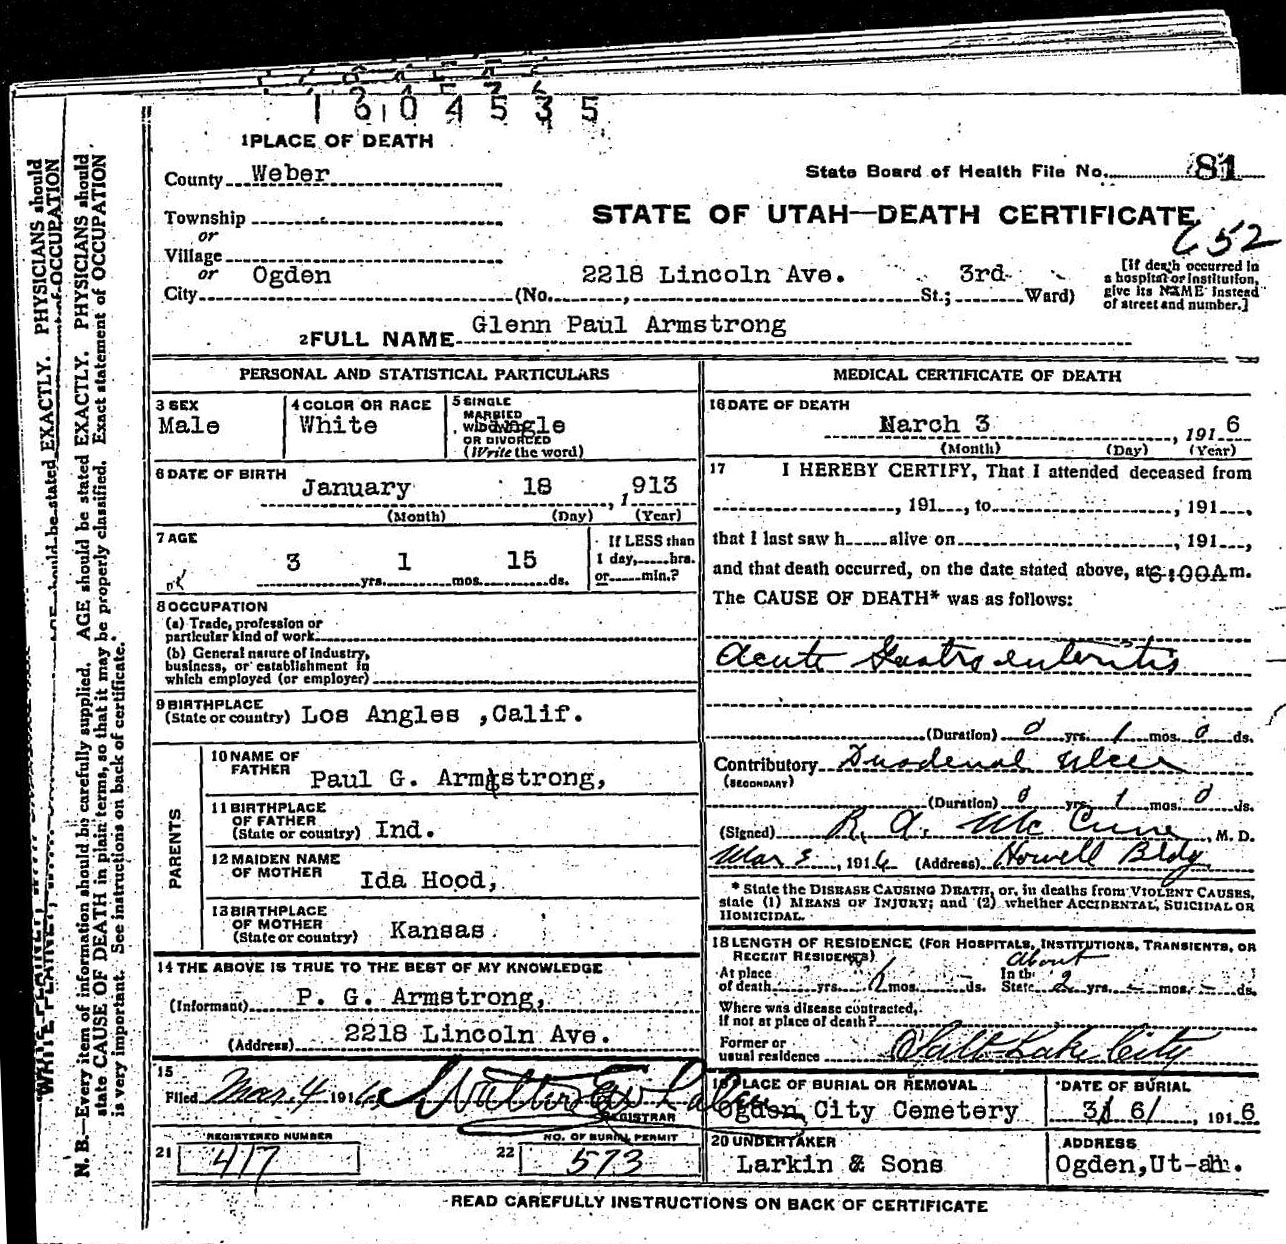 1604535
1 PLACE OF DEATH
County Weber
State Board of Health File No. 81
Township
STATE OF UTAH—DEATH CERTIFICATE
or
Village
or
City Ogden (No. 2218 Lincoln Ave. St.; 3rd Ward)
[If death occurred in
a hospital or institution,
give its NAME instead
of street and number.]
2 FULL NAME Glenn Paul Armstrong
PERSONAL AND STATISTICAL PARTICULARS
3 SEX
Male
4 COLOR OR RACE
White
5 SINGLE
MARRIED
WIDOWED
OR DIVORCED
(Write the word)
Single
6 DATE OF BIRTH
January 18, 1913
(Month) (Day) (Year)
7 AGE
3 yrs. 1 mos. 15 ds.
If LESS than
1 day, hrs.
or min.?
8 OCCUPATION
(a) Trade, profession or
particular kind of work
(b) General nature of industry,
business, or establishment in
which employed (or employer)
9 BIRTHPLACE
(State or country) Los Angles ,Calif.
PARENTS
10 NAME OF
FATHER Paul G. Armstrong,
11 BIRTHPLACE
OF FATHER
(State or country) Ind.
12 MAIDEN NAME
OF MOTHER Ida Hood,
13 BIRTHPLACE
OF MOTHER
(State or country) Kansas
14 THE ABOVE IS TRUE TO THE BEST OF MY KNOWLEDGE
(Informant) P. G. Armstrong,
(Address) 2218 Lincoln Ave.
15
Filed Mar. 4 1916
REGISTRAR
REGISTERED NUMBER
21 417
NO. OF BURIAL PERMIT
22 573
MEDICAL CERTIFICATE OF DEATH
16 DATE OF DEATH
March 3, 1916
(Month) (Day) (Year)
17 I HEREBY CERTIFY, That I attended deceased from
, 191 , to , 191 ,
that I last saw h alive on , 191 ,
and that death occurred, on the date stated above, at 6:00A m.
The CAUSE OF DEATH* was as follows:
Acute Gastro enteritis
(Duration) 0 yrs. 1 mos. 0 ds.
Contributory Duodenal Ulcer
(SECONDARY)
(Duration) 0 yrs. 1 mos. 0 ds.
(Signed) R. A. McCune, M. D.
Mar 3, 1916 (Address) Howell Bldg
* State the DISEASE CAUSING DEATH, or, in deaths from VIOLENT CAUSES,
state (1) MEANS OF INJURY; and (2) whether ACCIDENTAL, SUICIDAL OR
HOMICIDAL.
18 LENGTH OF RESIDENCE (FOR HOSPITALS, INSTITUTIONS, TRANSIENTS, OR
RECENT RESIDENTS)
At place
of death yrs. mos. ds.
In the
State About 2 yrs. - mos. - ds.
Where was disease contracted,
if not at place of death?
Former or
usual residence Salt Lake City
19 PLACE OF BURIAL OR REMOVAL
Ogden City Cemetery
DATE OF BURIAL
3/ 6/ 1916
20 UNDERTAKER
Larkin & Sons
ADDRESS
Ogden,Ut-ah.
READ CAREFULLY INSTRUCTIONS ON BACK OF CERTIFICATE
N. B.—Every item of information should be carefully supplied. AGE should be stated EXACTLY. PHYSICIANS should
state CAUSE OF DEATH in plain terms, so that it may be properly classified. Exact statement of OCCUPATION
is very important. See instructions on back of certificate.